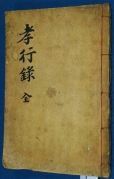 孝行錄 全